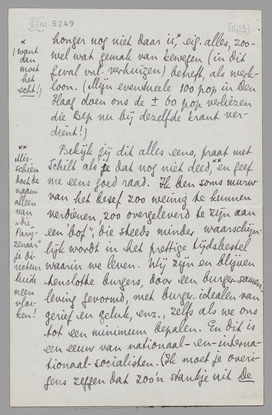 5249
honger nog niet daar is,* eig. alles, zoo-
wel wat gemak van bewegen (in dit
geval vnl. verhuizen) betreft, als werk-
loon. (Mijn eventueele 100 pop in den
Haag doen ons de ± 60 pop verliezen
die Bep nu bij dezelfde krant ver-
dient!)
Bekijk jij dit alles eens, praat met
Schilt als je dat nog niet deed,** en geef
me een goed raad. Ik ben soms murw
van het besef zoo weinig te kunnen
verdienen, zoo overgeleverd te zijn aan
een "bof", die steeds minder waarschijn-
lijk wordt in het prettige tijdsbestel
waarin we leven. Wij zijn en blijven
tenslotte burgers, door een burger-samen-
leving gevormd, met burger-idealen van
gerief en geluk, enz., zelfs als we ons
tot een minimum bepalen. En dit is
een eeuw van nationaal- en inter-
nationaal-socialisten. (Ik moet je overi-
gens zeggen dat zoo'n stankje uit De
*
(want
dan
moet
het
echt!)
**
Mis-
schien
hoeft de
naam
alleen
van
"die
Parij-
zenaar"
je di-
recteur
luide
neen
vloe-
ken!